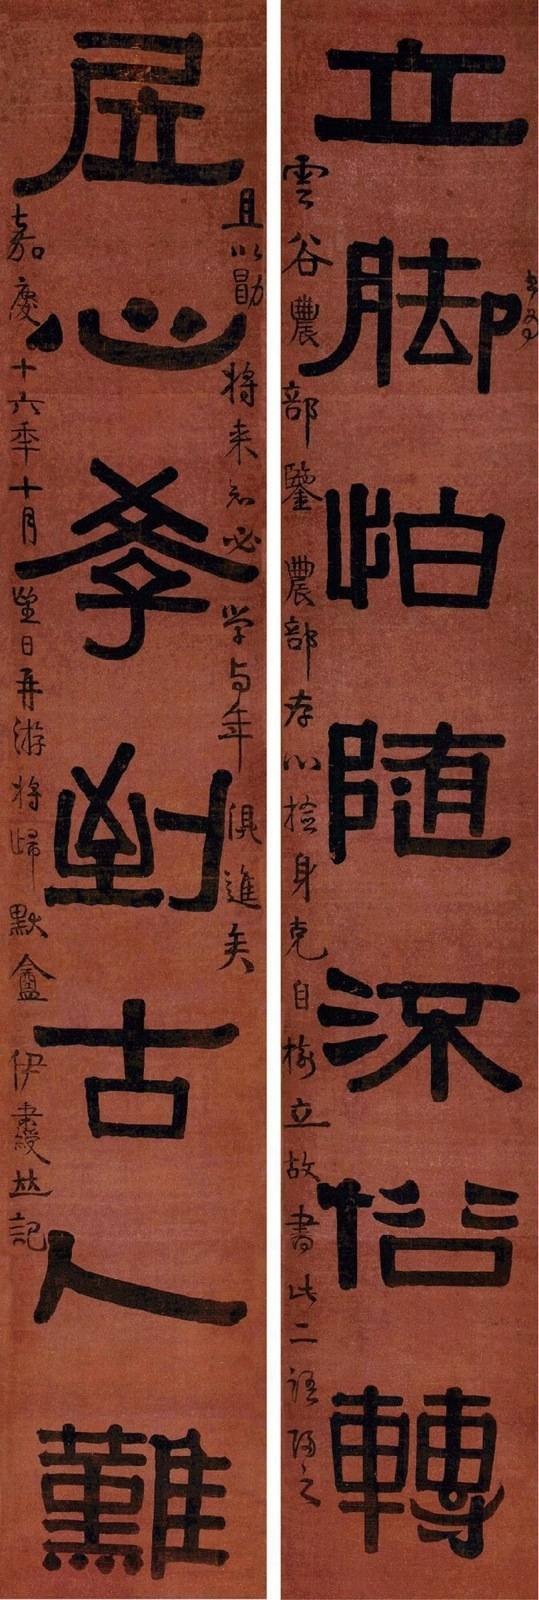 立脚怕随㳅俗轉
雲谷農部鑒 農部存心撿身克自樹立故書此二語贈之
且以勖將来知必学与年俱進矣
居心學到古人難
嘉慶十六年十月望日再游將歸默盦伊秉綬并記